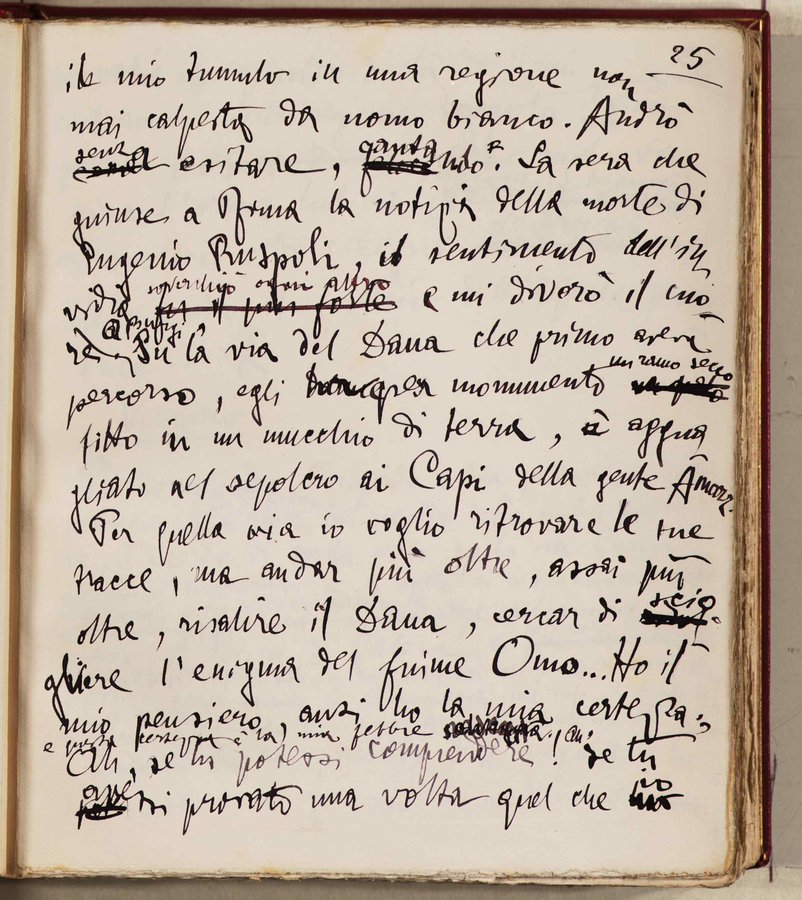 25
il mio tumulo in una regione non
mai calpesta da uomo bianco. Andrò
senza esitare, cantando. La sera che
giunse a Roma la notizia della morte di
Eugenio Ruspoli, il sentimento dell'in
vidia soverchiò ogni altro e mi divorò il cuo
re. A Burgi
Su la via del Daua che primo aveva
percorso, egli ha per monumento un ramo secco
fitto in un mucchio di terra, è aggua
gliato nel sepolcro ai Capi della gente Amarr.
Per quella via io voglio ritrovare le sue
tracce, ma andar più oltre, assai più
oltre, risalire il Daua, cercar di scio
gliere l'enigma del fiume Omo... Ho il
mio pensiero, anzi ho la mia certezza;
e questa certezza è la mia febbre
Ah, se tu potessi comprendere! Ah! se tu
avessi provato una volta quel che io